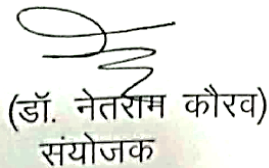 (डॉ. नेतराम कौरव)
संयोजक